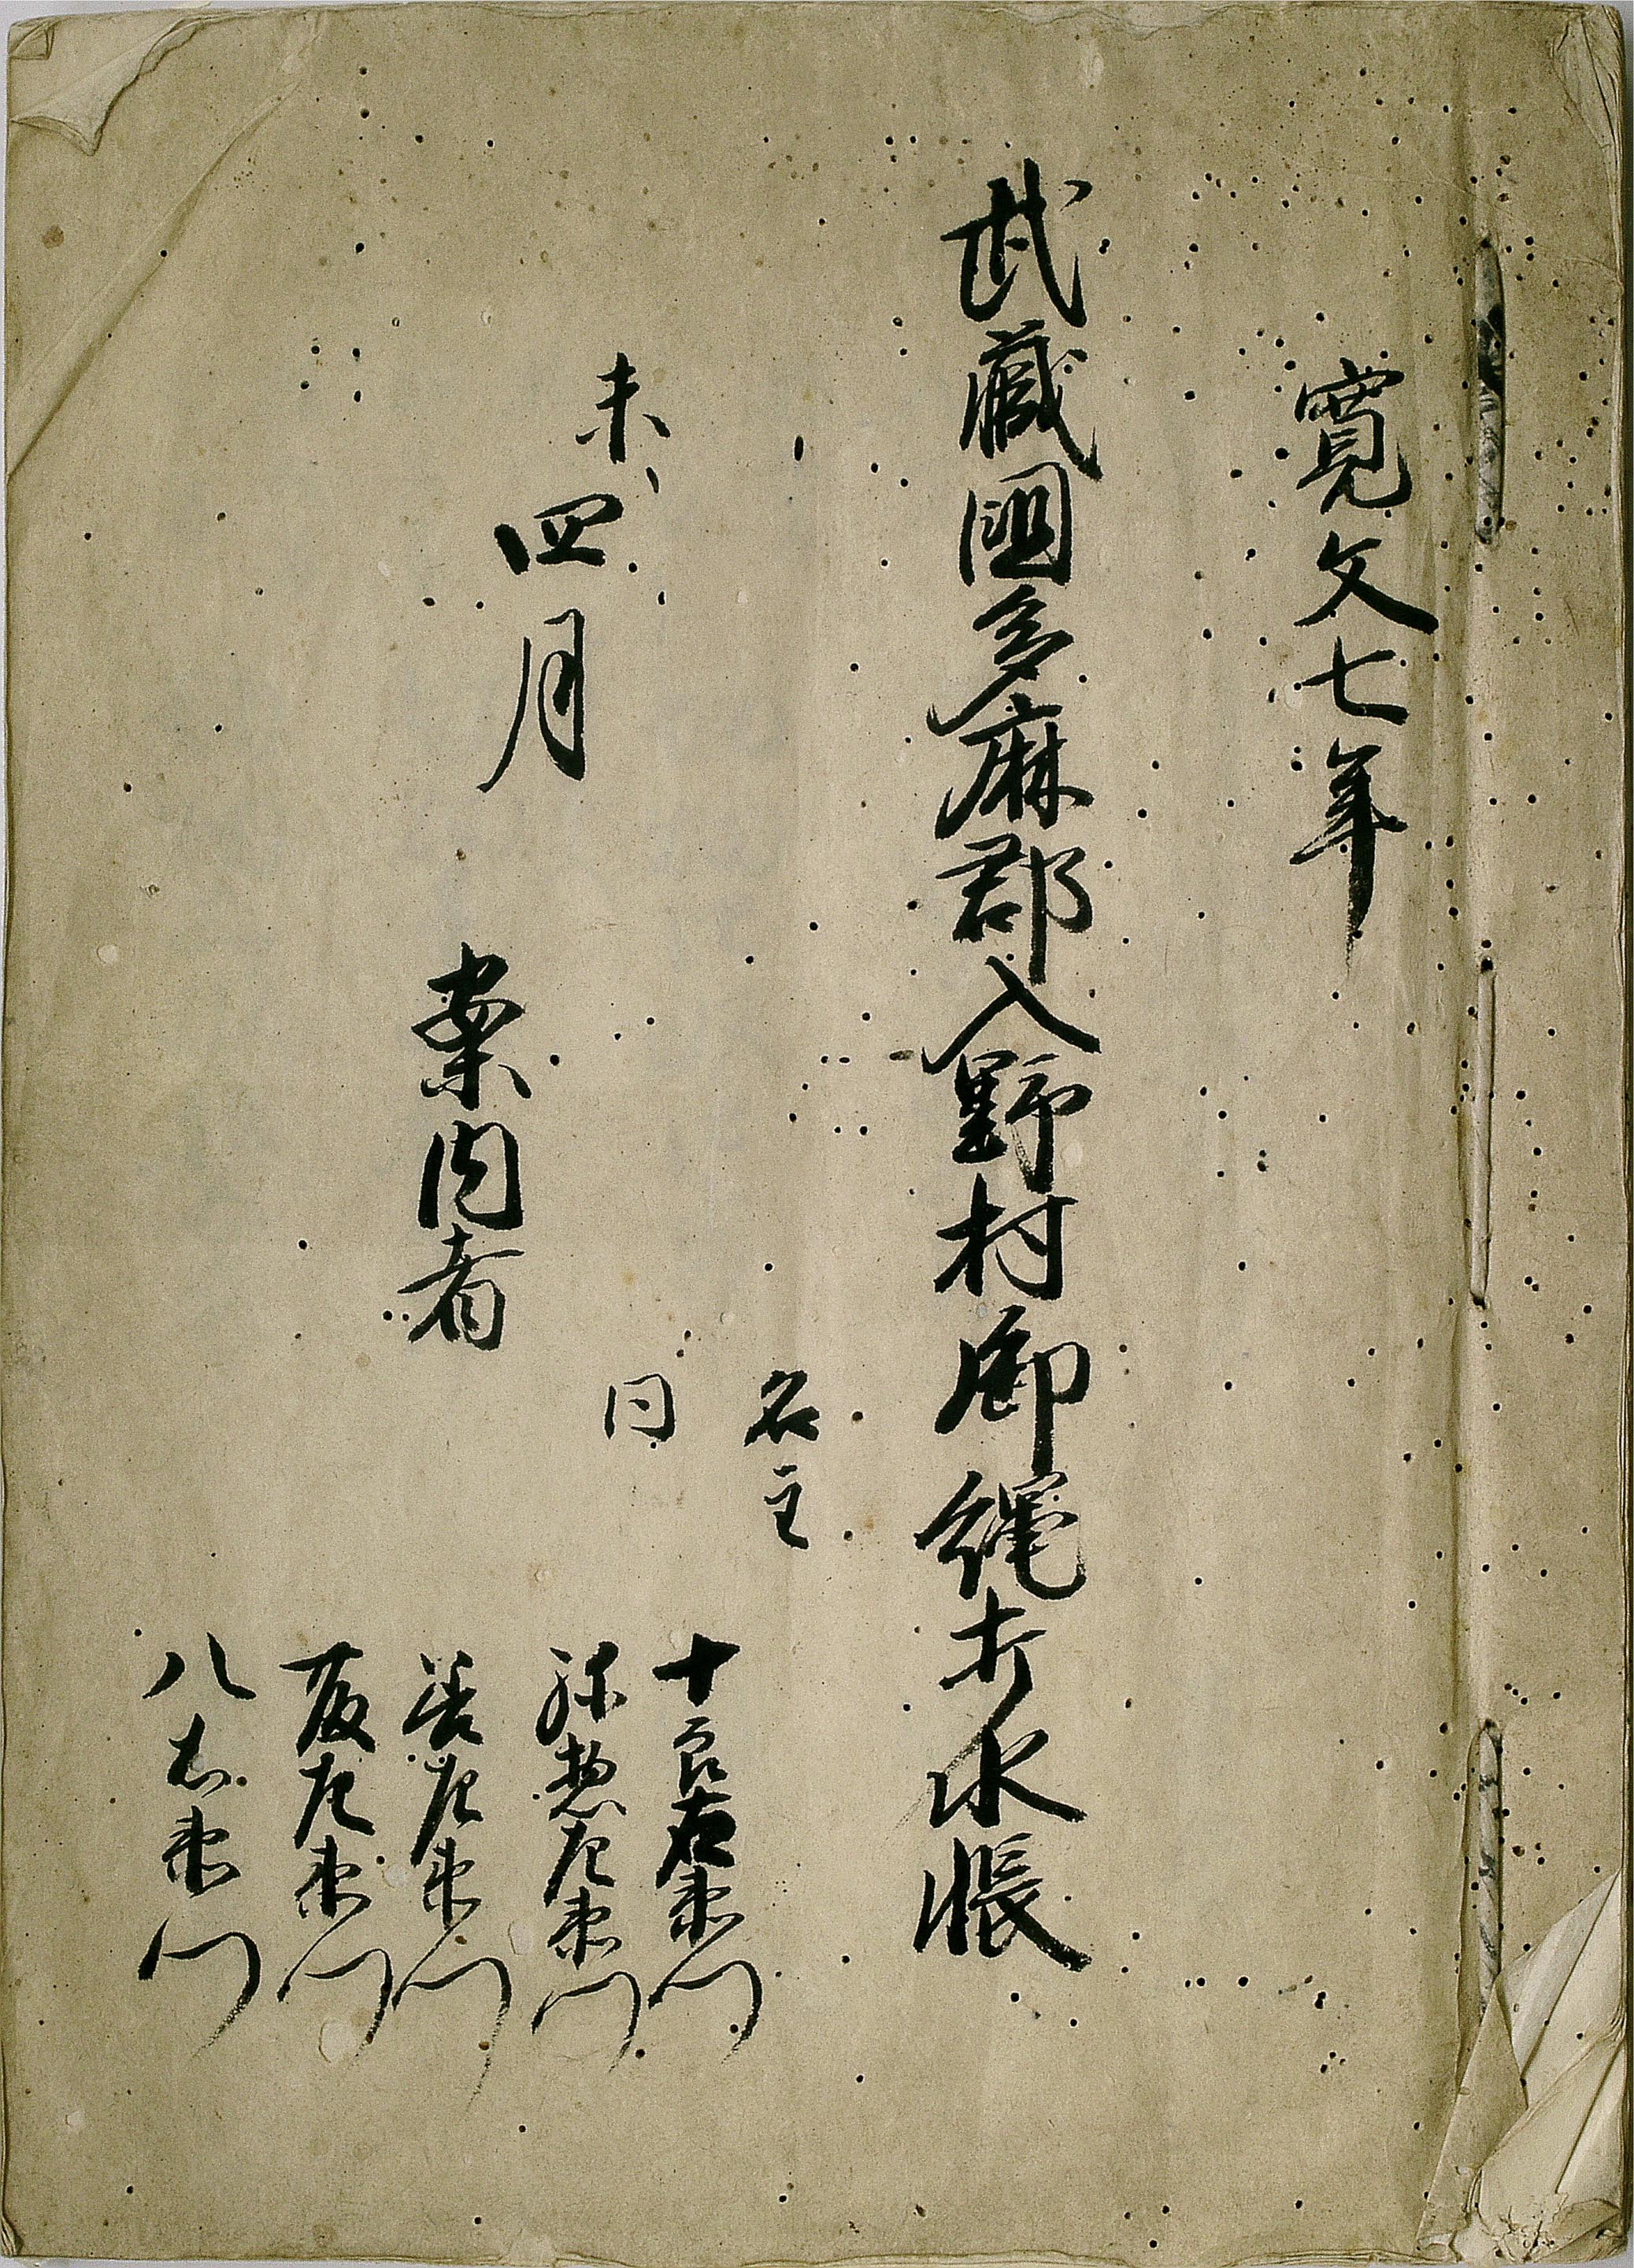 寛文七年
武藏國多麻郡入野村御縄打水帳
未
四月
名主
十郎右衛門
同
弥惣左衛門
案内者
善左衛門
左衛門
八右衛門